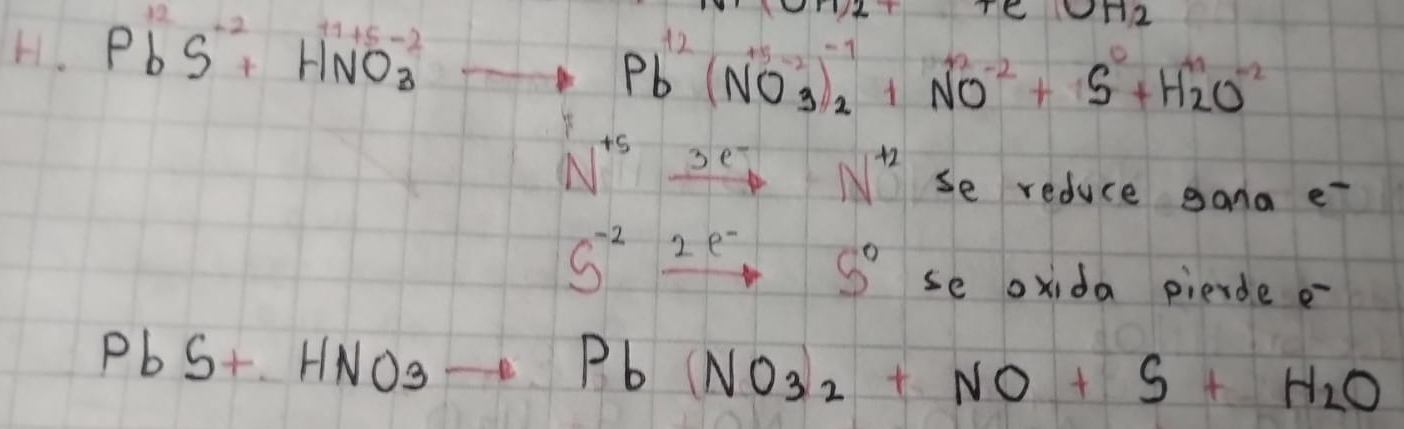 + +e (OH)2
H. Pb⁺²S⁻² + H⁺¹N⁺⁵O₃⁻² → Pb⁺²(N⁺⁵O⁻²₃)₂⁻¹ + N⁺²O⁻² + S⁰ + H⁺¹₂O⁻²
N⁺⁵ 3e⁻→ N⁺² se reduce gana e⁻
S⁻² 2e⁻→ S⁰ se oxida pierde e⁻
PbS + HNO₃ → Pb(NO₃)₂ + NO + S + H₂O